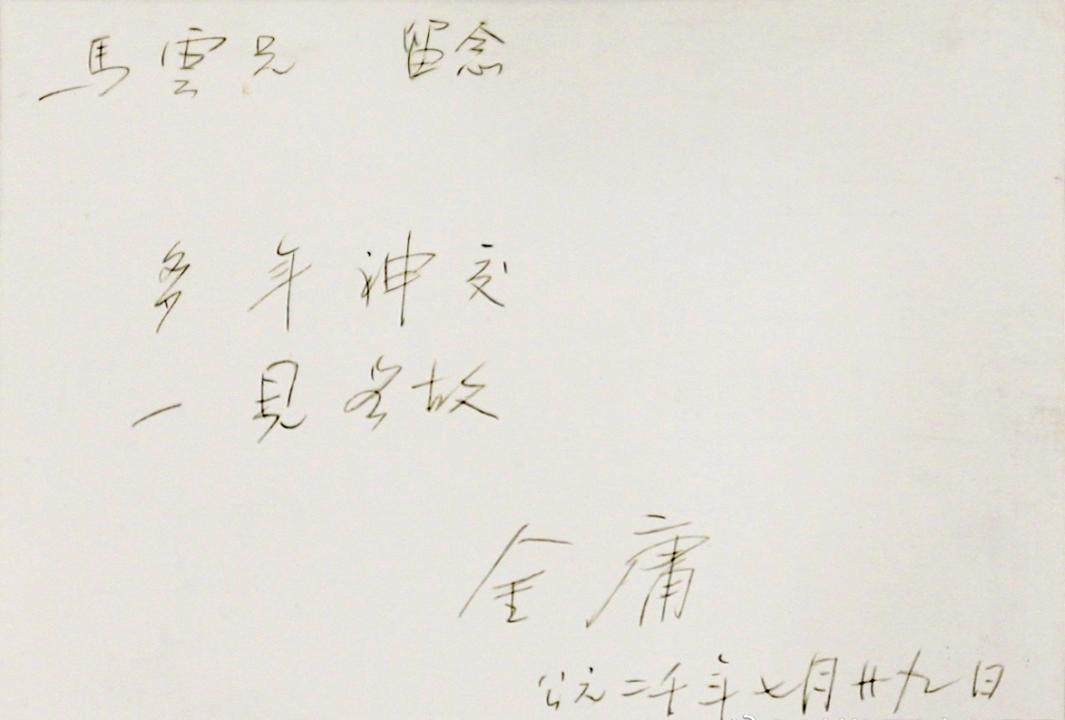 馬雲兄 留念
多年神交
一見若故
金庸
公元二千年七月廿九日